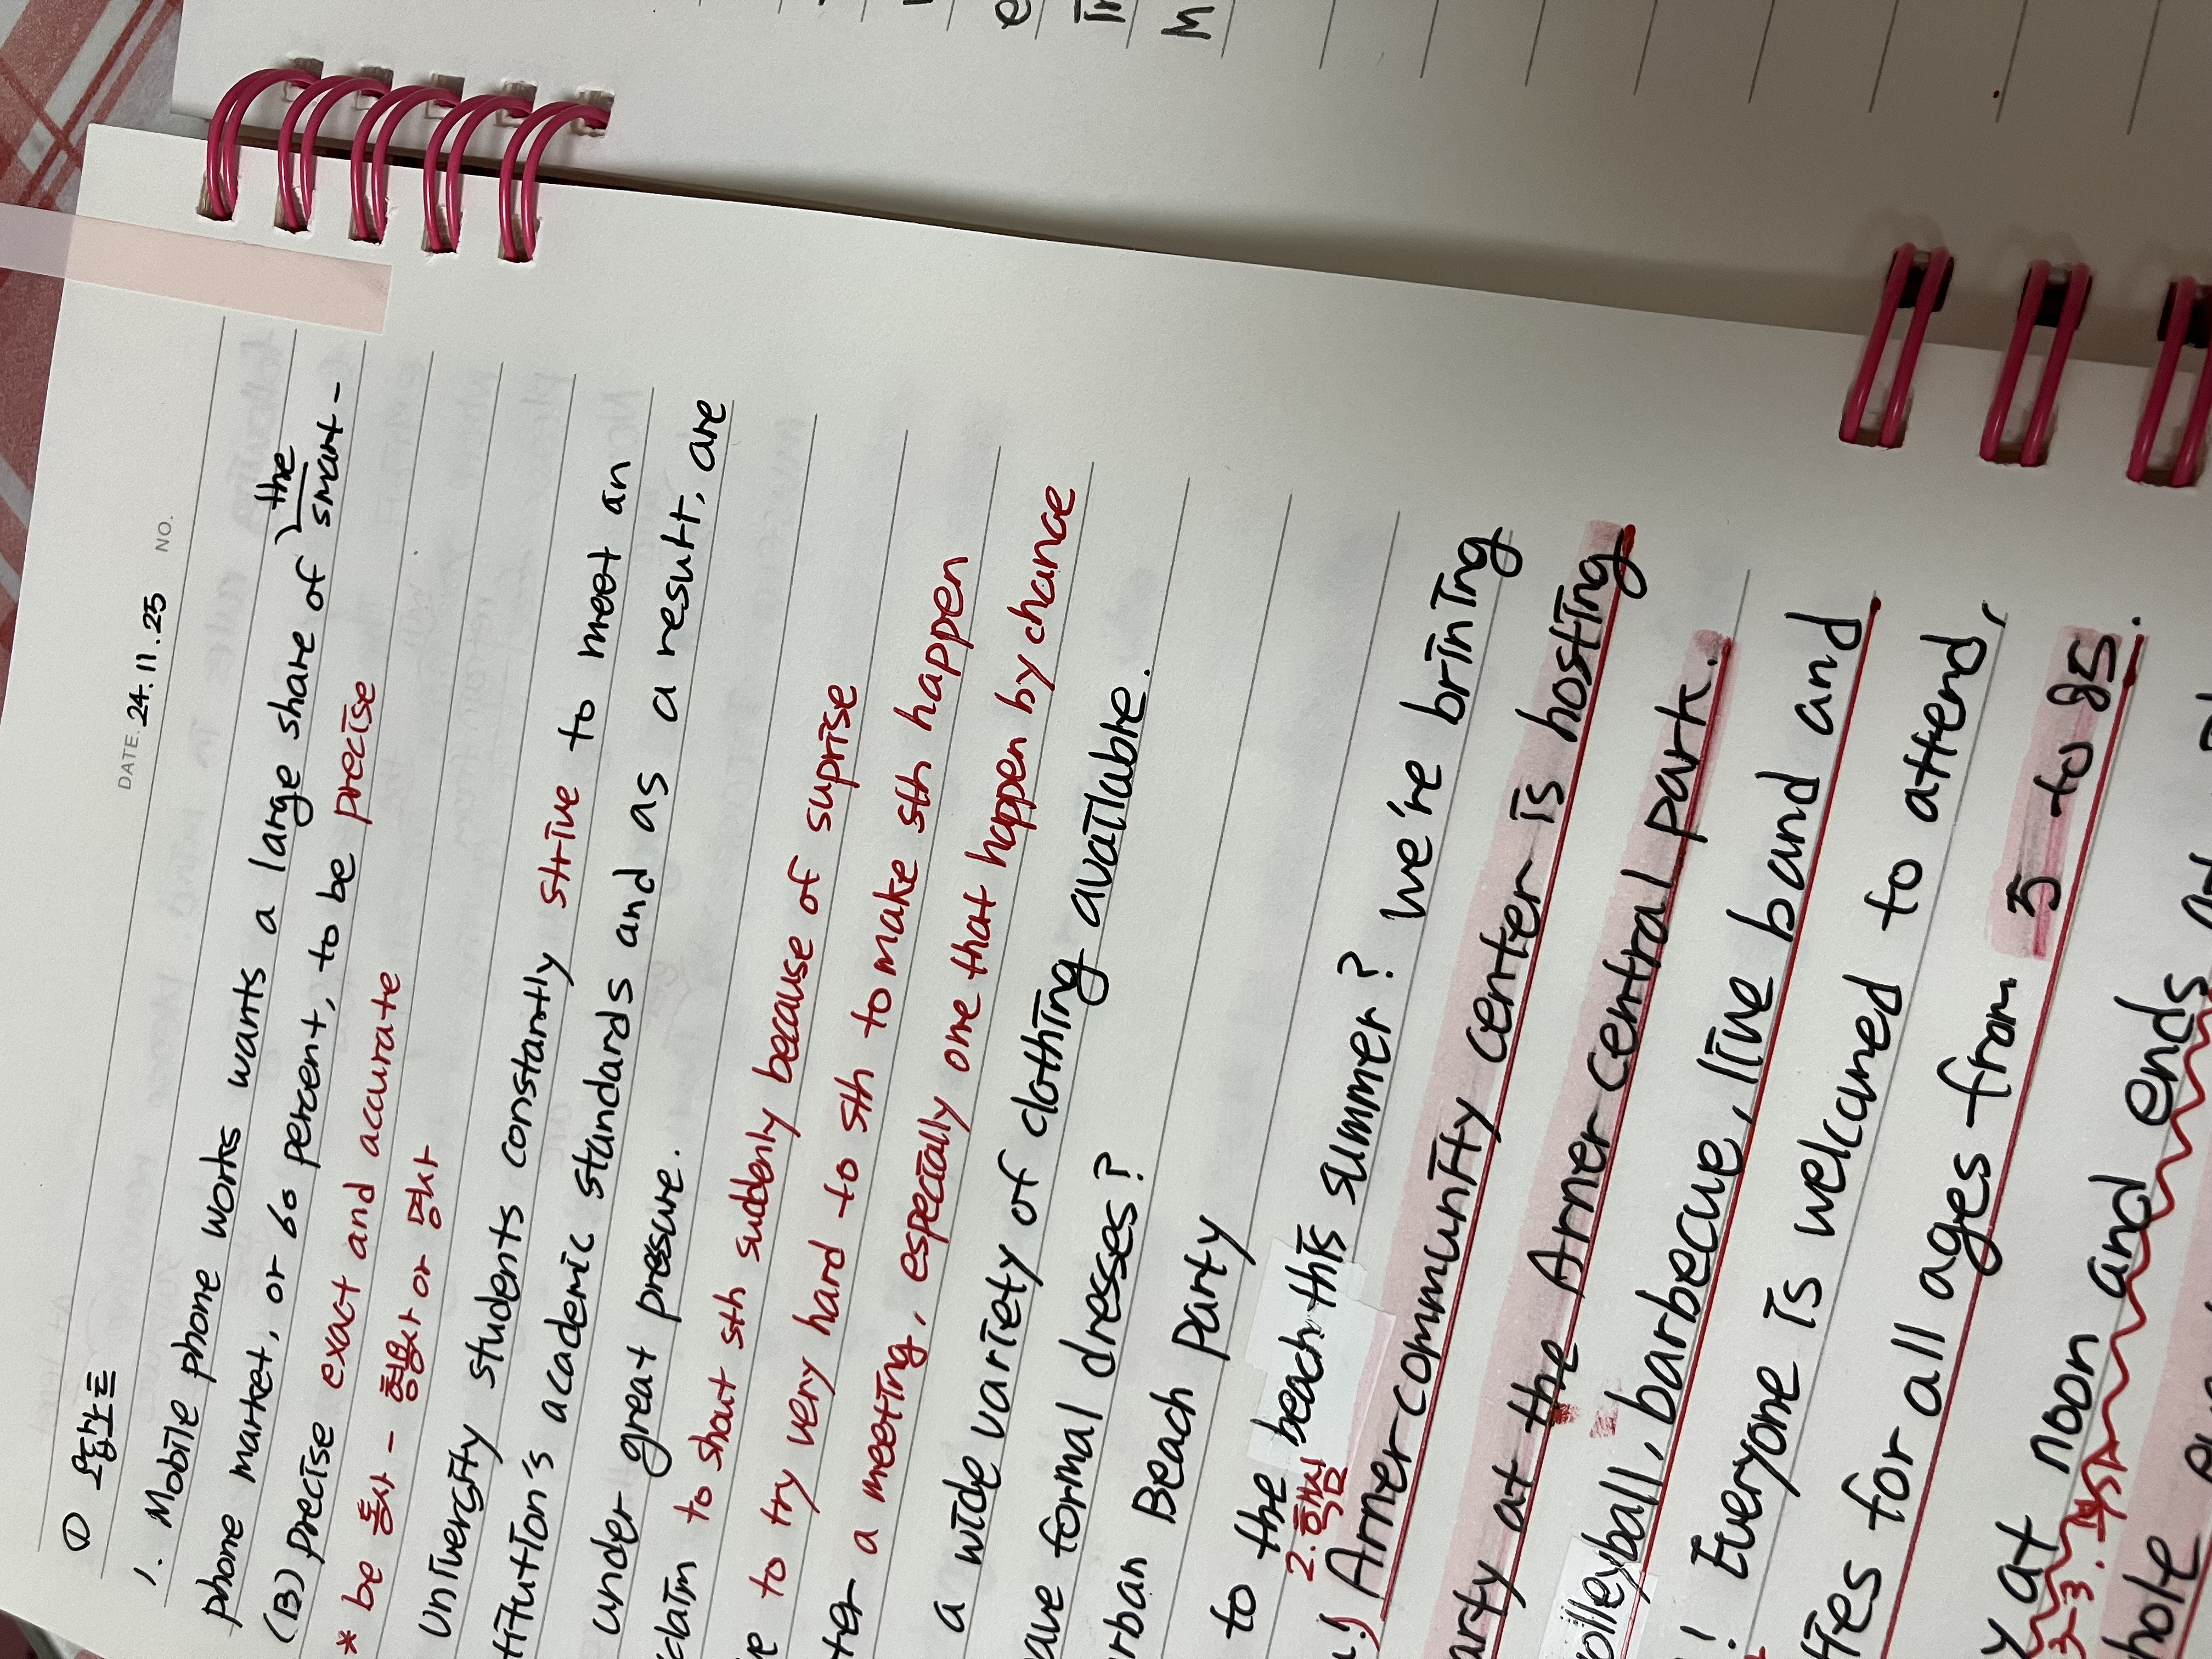 DATE. 24. 11. 25 NO.
① 오답노트
1. Mobile phone works wants a large share of the smart-
phone market, or 60 percent, to be precise
(B) precise exact and accurate
* be 동사 - 형용사 or 명사
Univercity students constantly strive to meet an
titution's academic standards and as a result, are
under great pressure.
claim to shout sth suddenly because of suprise
e to try very hard to sth to make sth happen
ter a meeting, especially one that happen by chance
a wide variety of clothing available.
ave formal dresses?
rban Beach party
to the beach this summer? we're brining
2. 핵심
u!) Arner community center is hosting
arty at the Arner central park.
olleyball, barbecue, live band and
! Everyone is welcomed to attend,
ties for all ages from 5 to 85.
y at noon and ends
3-3.
hole
e
in
M